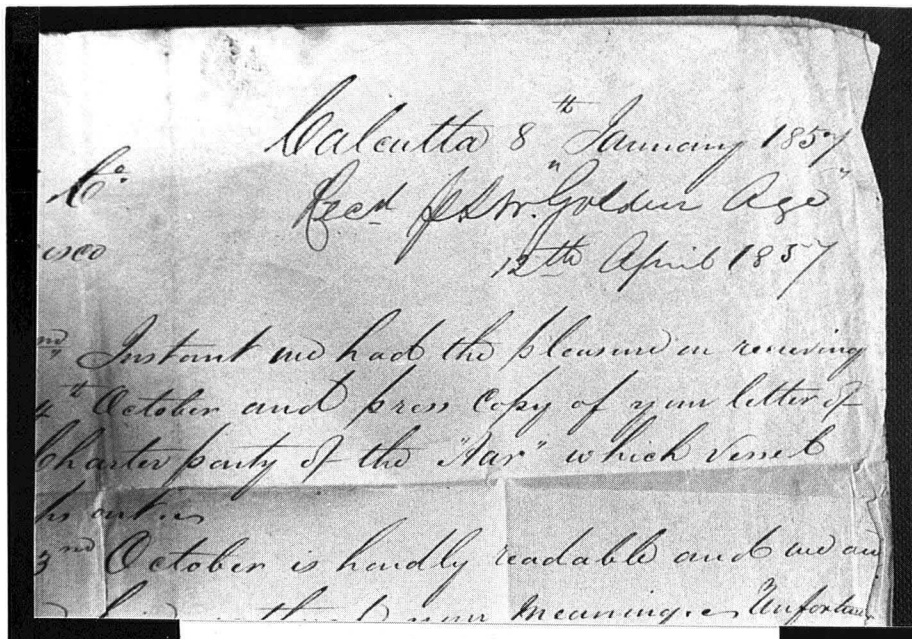 Calcutta 8th January 1857
Co.
Recd "Golden Age"
isco
12th April 1857
nd Instant we had the pleasure on receiving
4th October and press copy of your letter of
Charter party of the "Aar" which vessel
October is hardly readable and we an
your meaning Unfortun